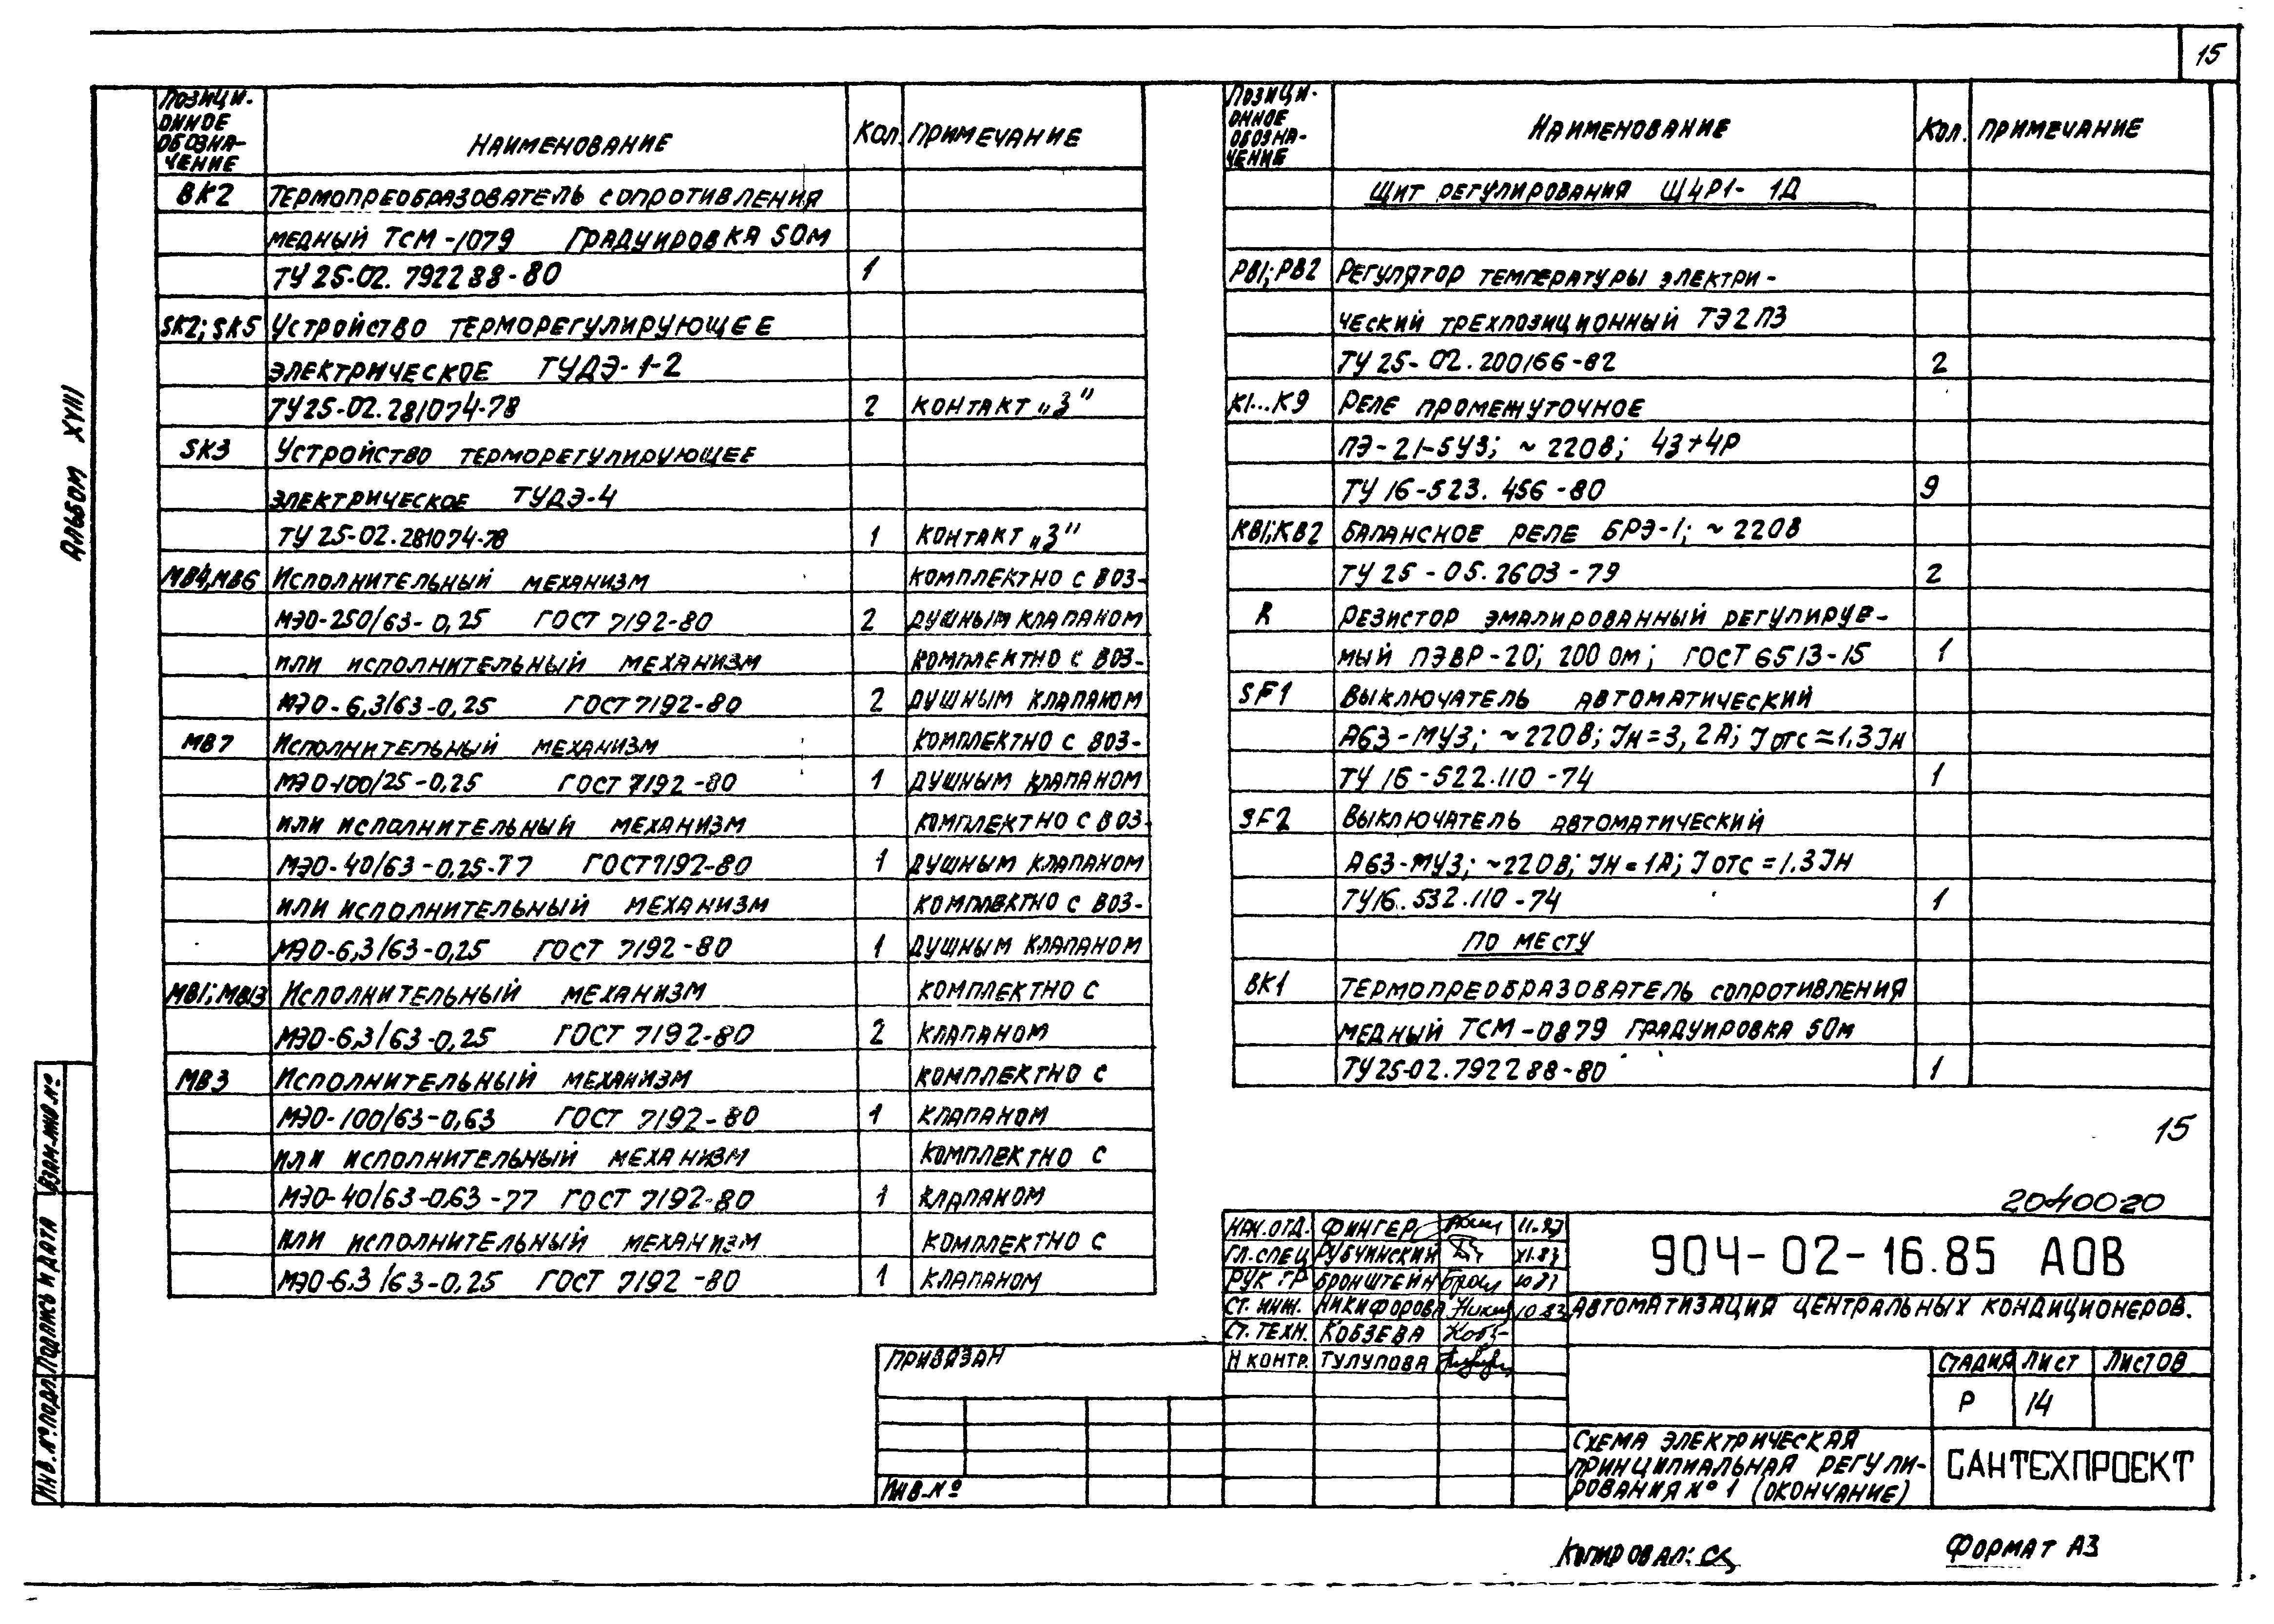 15
Альбом XVIII
Позици-
онное
обозна-
чение
Наименование
Кол.
Примечание
ВК2 Термопреобразователь сопротивления
медный ТСМ-1079 градуировка 50М
ТУ 25-02.792288-80 1
SK2; SK5 Устройство терморегулирующее
электрическое ТУДЭ-1-2
ТУ25-02.281074-78 2 контакт „З"
SK3 Устройство терморегулирующее
электрическое ТУДЭ-4
ТУ 25-02.281074-78 1 контакт „З"
МВ4, МВ6 Исполнительный механизм комплектно с воз-
МЭО-250/63-0,25 ГОСТ 7192-80 2 душным клапаном
или исполнительный механизм комплектно с воз-
МЭО-6,3/63-0,25 ГОСТ 7192-80 2 душным клапаном
МВ7 Исполнительный механизм комплектно с воз-
МЭО-100/25-0,25 ГОСТ 7192-80 1 душным клапаном
или исполнительный механизм комплектно с воз-
МЭО-40/63-0,25-77 ГОСТ 7192-80 1 душным клапаном
или исполнительный механизм комплектно с воз-
МЭО-6,3/63-0,25 ГОСТ 7192-80 1 душным клапаном
МВ1; МВ13 Исполнительный механизм комплектно с
МЭО-6,3/63-0,25 ГОСТ 7192-80 2 клапаном
МВ3 Исполнительный механизм комплектно с
МЭО-100/63-0,63 ГОСТ 7192-80 1 клапаном
или исполнительный механизм комплектно с
МЭО-40/63-0,63-77 ГОСТ 7192-80 1 клапаном
или исполнительный механизм комплектно с
МЭО-6.3/63-0,25 ГОСТ 7192-80 1 клапаном
Позици-
онное
обозна-
чение
Наименование
Кол.
Примечание
Щит регулирования Щ4Р1-1Д
РВ1; РВ2 Регулятор температуры электри-
ческий трехпозиционный ТЭ2П3
ТУ 25-02.200166-82 2
К1...К9 Реле промежуточное
ПЭ-21-5У3; ~220В; 4з+4р
ТУ 16-523.456-80 9
КВ1; КВ2 Балансное реле БРЭ-1; ~220В
ТУ 25-05.2603-79 2
R Резистор эмалированный регулируе-
мый ПЭВР-20; 200 Ом; ГОСТ 6513-15 1
SF1 Выключатель автоматический
А63-МУ3; ~220В; Iн=3,2А; Iотс=1.3Iн
ТУ 16-522.110-74 1
SF2 Выключатель автоматический
А63-МУ3; ~220В; Iн=1А; Iотс=1.3Iн
ТУ16.532.110-74 1
По месту
ВК1 Термопреобразователь сопротивления
медный ТСМ-0879 градуировка 50М
ТУ25-02.792288-80 1
15
20400-20
Нач.отд. Фингер 11.83
Гл.спец Рубчинский XI.83
Рук гр Бронштейн 10.83
Ст. инж. Никифорова 10.83
Ст. техн. Кобзева
Н контр. Тулупова
904-02-16.85 АОВ
Автоматизация центральных кондиционеров.
Стадия Лист Листов
Р 14
Схема электрическая
принципиальная регули-
рования №1 (окончание)
САНТЕХПРОЕКТ
Привязан
Инв.№
Инв.№ подл. Подпись и дата Взам.инв.№
Копировал:
Формат А3